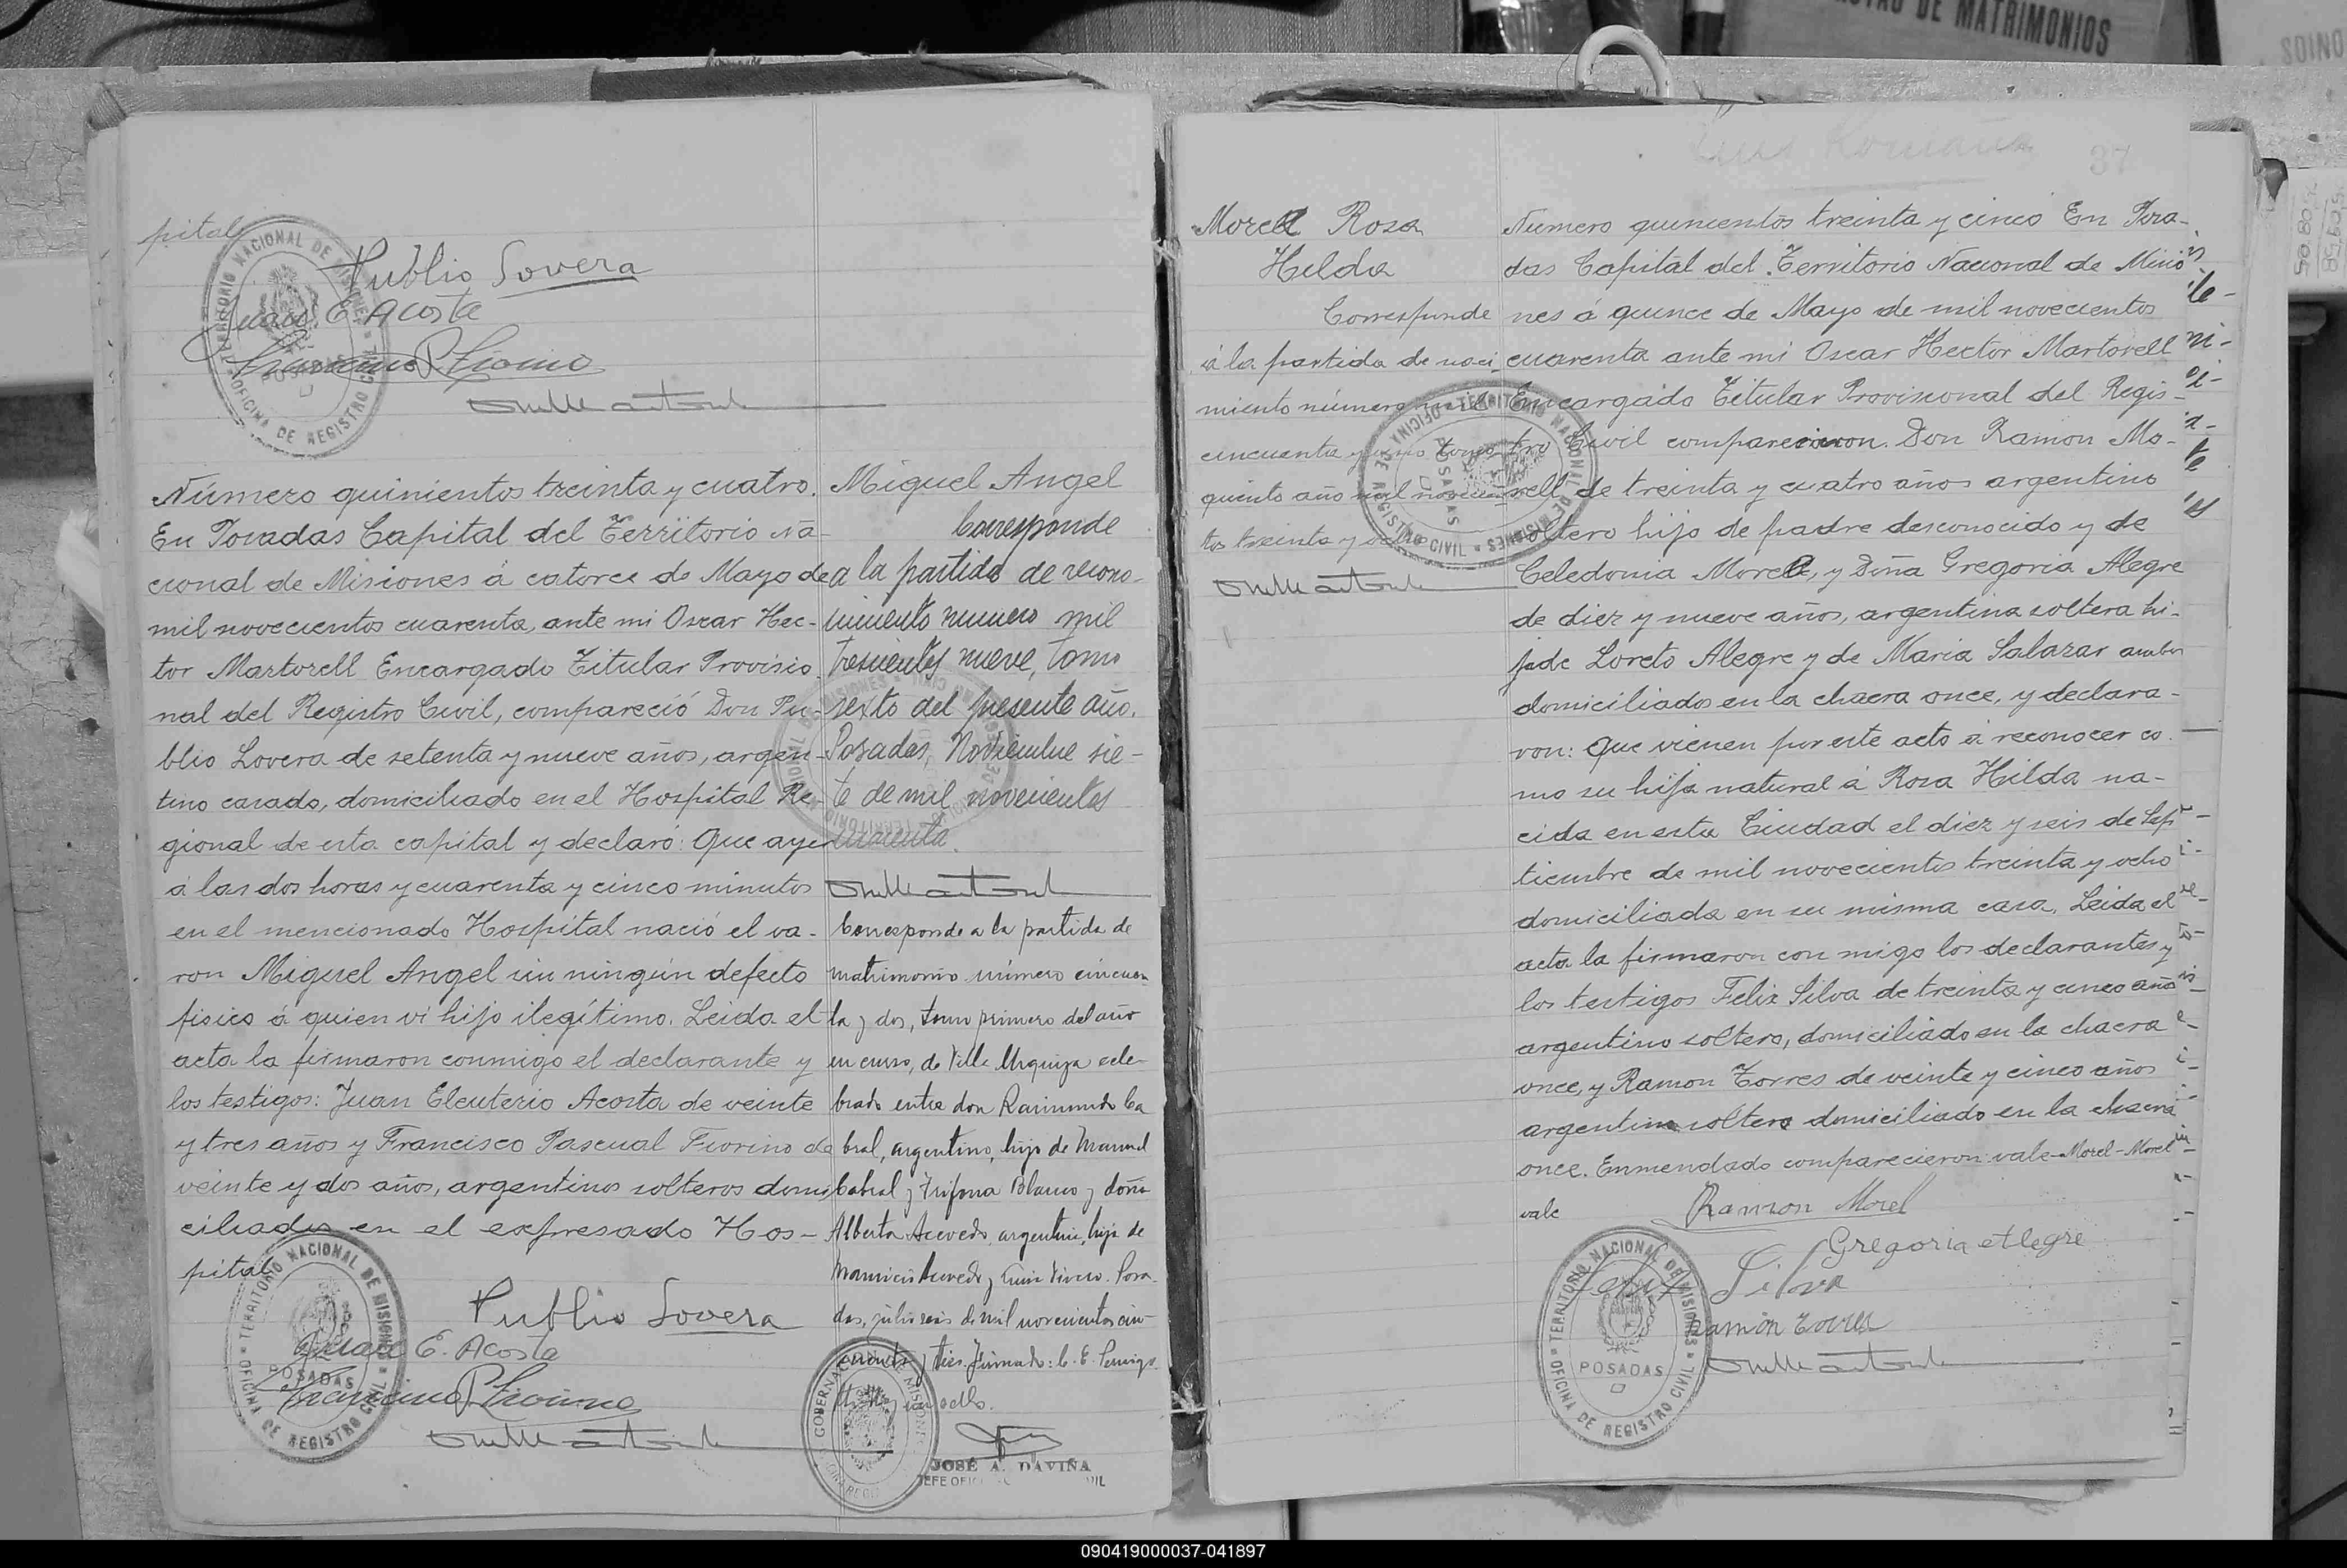 pital
Publio Lovera
Juan E. Acosta
Francisco P. Fiorino
Número quinientos treinta y cuatro.
En Posadas Capital del Territorio Na-
cional de Misiones á catorce de Mayo de
mil novecientos cuarenta, ante mi Oscar Hec-
tor Martorell Encargado Titular Provisio
nal del Registro Civil, compareció Don Pu-
blio Lovera de setenta y nueve años, argen-
tino casado, domiciliado en el Hospital Re-
gional de esta capital y declaró: Que ayer
á las dos horas y cuarenta y cinco minutos
en el mencionado Hospital nació el va-
ron Miguel Angel sin ningún defecto
fisico á quien vi hijo ilegítimo. Leida el
acta la firmaron conmigo el declarante y
los testigos: Juan Eleuterio Acosta de veinte
y tres años y Francisco Pascual Fiorino de
veinte y dos años, argentinos solteros domi
ciliados en el expresado Hos-
pital
Publio Lovera
Juan E. Acosta
Francisco P. Fiorino
Miguel Angel
Corresponde
a la partida de recono-
cimiento numero mil
trescientos nueve, tomo
sexto del presente año.
Posadas, Noviembre sie-
te de mil novecientos
cuarenta.
Corresponde a la partida de
matrimonio número cincuen
ta y dos, tomo primero del año
en curso, de Villa Urquiza cele-
brado entre don Raimundo Ca
bral, argentino, hijo de Manuel
Cabral y Trifona Blanco y doña
Alberta Acevedo, argentina, hija de
Mauricio Acevedo y Posa-
das, julio seis de mil novecientos cin-
cuenta y tres. Firmado: C. E.
sello.
JOSÉ A. DAVIÑA
JEFE OFIC
TERRITORIO NACIONAL DE MISIONES
OFICINA DE REGISTRO CIVIL
POSADAS
Luis Romaña
37
Morel Rosa
Hilda
Corresponde
á la partida de naci-
miento número
cincuenta y uno tomo
quinto año mil novecien-
tos treinta y ocho
Número quinientos treinta y cinco En Posa-
das Capital del Territorio Nacional de Misio
nes á quince de Mayo de mil novecientos
cuarenta ante mi Oscar Hector Martorell
Encargado Titular Provisional del Regis-
tro Civil comparecieron. Don Ramon Mo-
rell de treinta y cuatro años argentino
soltero hijo de padre desconocido y de
Celedonia Morel, y Doña Gregoria Alegre
de diez y nueve años, argentina soltera hi-
ja de Loreto Alegre y de Maria Salazar ambos
domiciliados en la chacra once, y declara-
ron: Que vienen por este acto á reconocer co-
mo su hija natural á Rosa Hilda na-
cida en esta Ciudad el diez y seis de Sep
tiembre de mil novecientos treinta y ocho
domiciliada en su misma casa. Leida el
acta la firmaron con migo los declarantes y
los testigos Felix Silva de treinta y cinco años
argentino soltero, domiciliado en la chacra
once, y Ramon Torres de veinte y cinco años
argentino soltero domiciliado en la chacra
once. Enmendado comparecieron vale-Morel-Morel
vale
Ramon Morel
Gregoria Alegre
Felix Silva
Ramón Torres
TERRITORIO NACIONAL DE MISIONES
OFICINA DE REGISTRO CIVIL
POSADAS
DE MATRIMONIOS
090419000037-041897